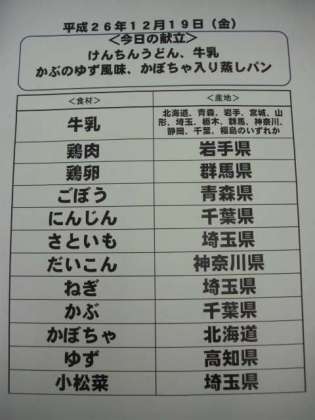 平成26年12月19日（金）
＜今日の献立＞
けんちんうどん、牛乳
かぶのゆず風味、かぼちゃ入り蒸しパン
＜食材＞ ＜産地＞
牛乳 北海道、青森、岩手、宮城、山
形、埼玉、栃木、群馬、神奈川、
静岡、千葉、福島のいずれか
鶏肉 岩手県
鶏卵 群馬県
ごぼう 青森県
にんじん 千葉県
さといも 埼玉県
だいこん 神奈川県
ねぎ 埼玉県
かぶ 千葉県
かぼちゃ 北海道
ゆず 高知県
小松菜 埼玉県